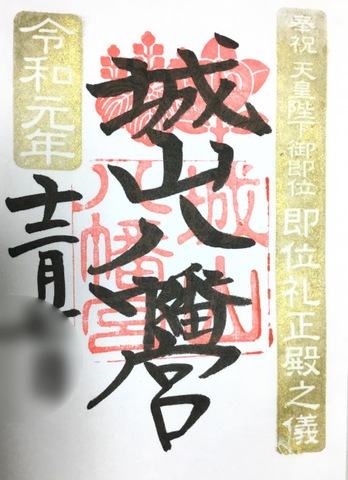 奉祝 天皇陛下御即位 即位礼正殿之儀
城山八幡宮
城山
八幡宮
令和元年
十二月